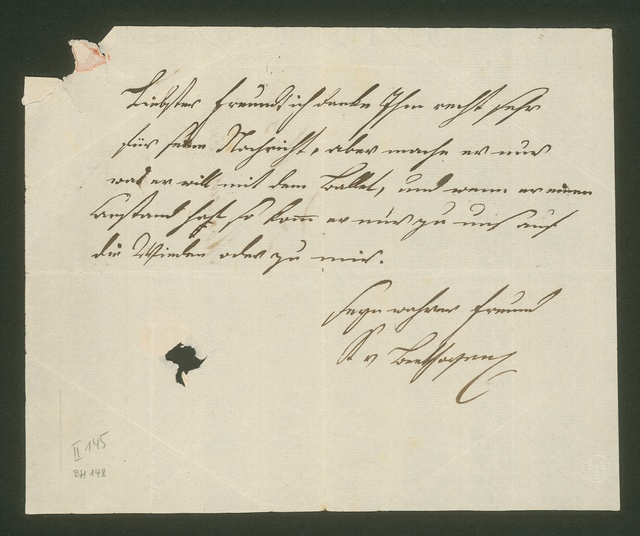 Liebster Freund ich danke Ihm recht sehr
für seine Nachricht, aber mache er nur
was er will mit dem Ballet, und wenn er einen
anstand hat so komm er nur zu uns auf
die Wieden oder zu mir.
sein wahrer Freund
v Beethowen
II 145
BH 148